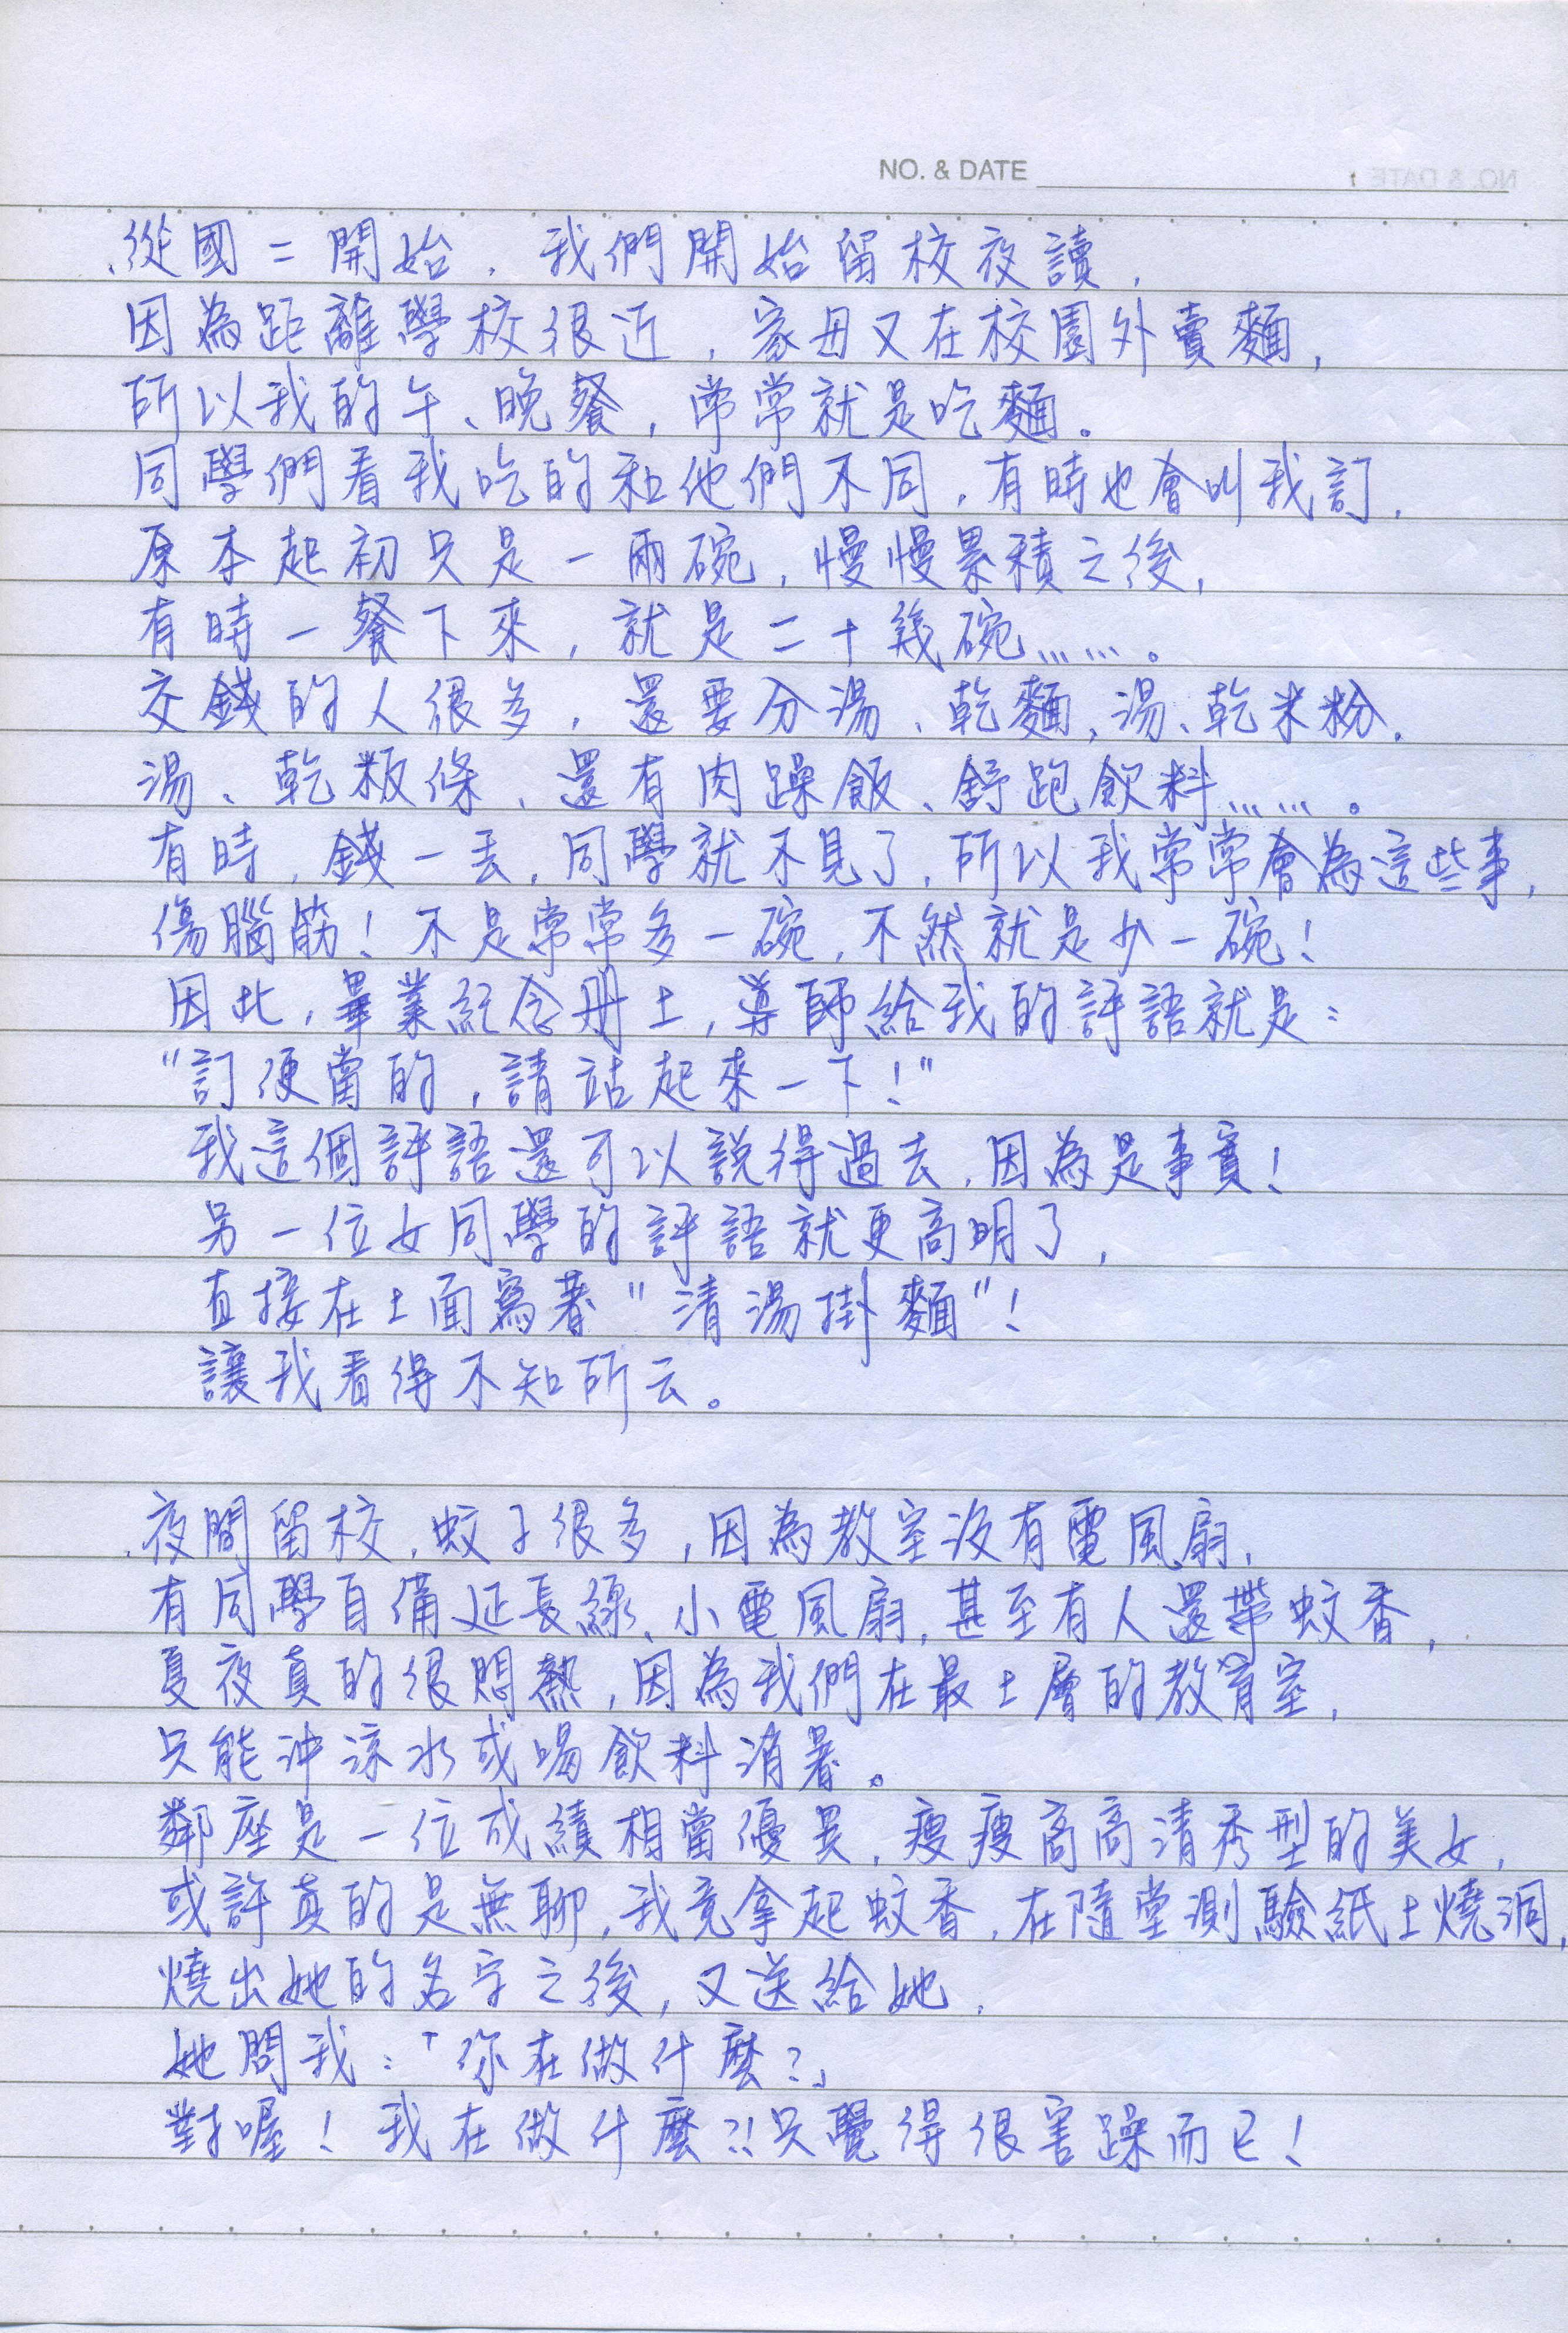 NO. & DATE
.從國二開始,我們開始留校夜讀,
因為距離學校很近,家母又在校園外賣麵,
所以我的午、晚餐,常常就是吃麵。
同學們看我吃的和他們不同,有時也會叫我訂,
原本起初只是一兩碗,慢慢累積之後,
有時一餐下來,就是二十幾碗……。
交錢的人很多,還要分湯、乾麵,湯、乾米粉,
湯、乾粄條、還有肉躁飯、舒跑飲料……。
有時,錢一丟,同學就不見了,所以我常常會為這些事,
傷腦筋!不是常常多一碗,不然就是少一碗!
因此,畢業紀念冊上,導師給我的評語就是:
"訂便當的,請站起來一下!"
我這個評語還可以說得過去,因為是事實!
另一位女同學的評語就更高明了,
直接在上面寫著"清湯掛麵"!
讓我看得不知所云。
.夜間留校,蚊子很多,因為教室沒有電風扇,
有同學自備延長線、小電風扇,甚至有人還帶蚊香,
夏夜真的很悶熱,因為我們在最上層的教育室,
只能沖涼水或喝飲料消暑。
鄰座是一位成績相當優異,瘦瘦高高清秀型的美女,
或許真的是無聊,我竟拿起蚊香,在隨堂測驗紙上燒洞,
燒出她的名字之後,又送給她,
她問我:「你在做什麼?」
對喔!我在做什麼?!只覺得很害躁而已!